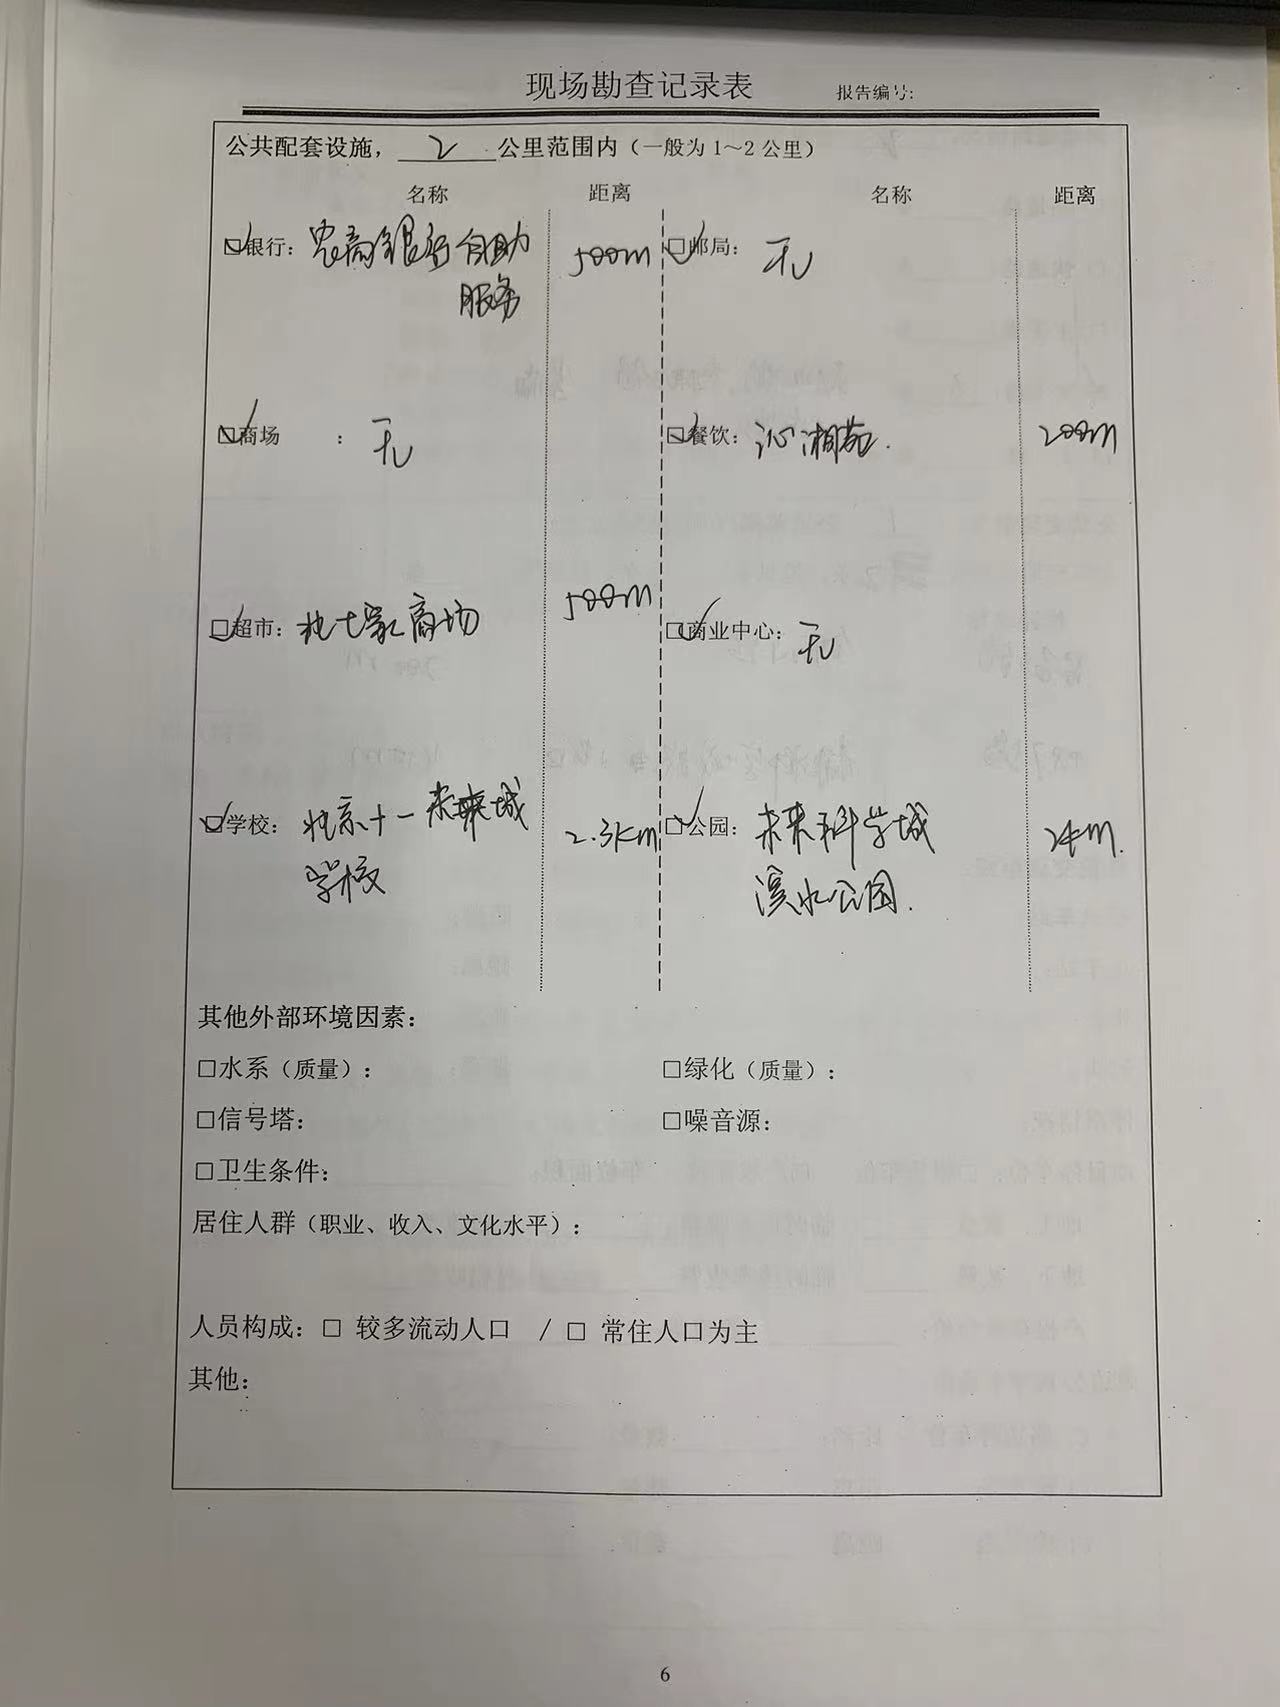 现场勘查记录表 报告编号:
公共配套设施，2公里范围内（一般为1～2公里）
名称 距离 名称 距离
☑银行：农商银行自助 500m ☑邮局：无
服务
☑商场：无 ☑餐饮：沁湘苑. 200m
☑超市：北七家商场 500m ☑商业中心：无
☑学校：北京十一未来城 2.3km ☑公园：未来科学城 2km.
学校 滨水公园.
其他外部环境因素：
□水系（质量）： □绿化（质量）：
□信号塔： □噪音源：
□卫生条件：
居住人群（职业、收入、文化水平）：
人员构成：□ 较多流动人口 / □ 常住人口为主
其他：
6